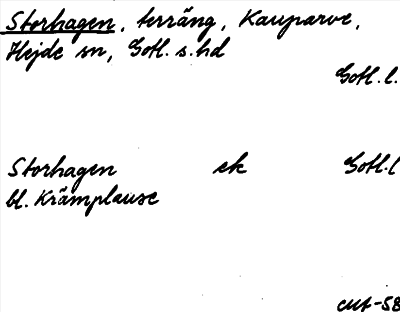 Storhagen, terräng, Kauparve,
Hejde sn, Gotl. s. hd
Gotl. l.
Storhagen ek Gotl. l
bl. Krämplause
cut-58